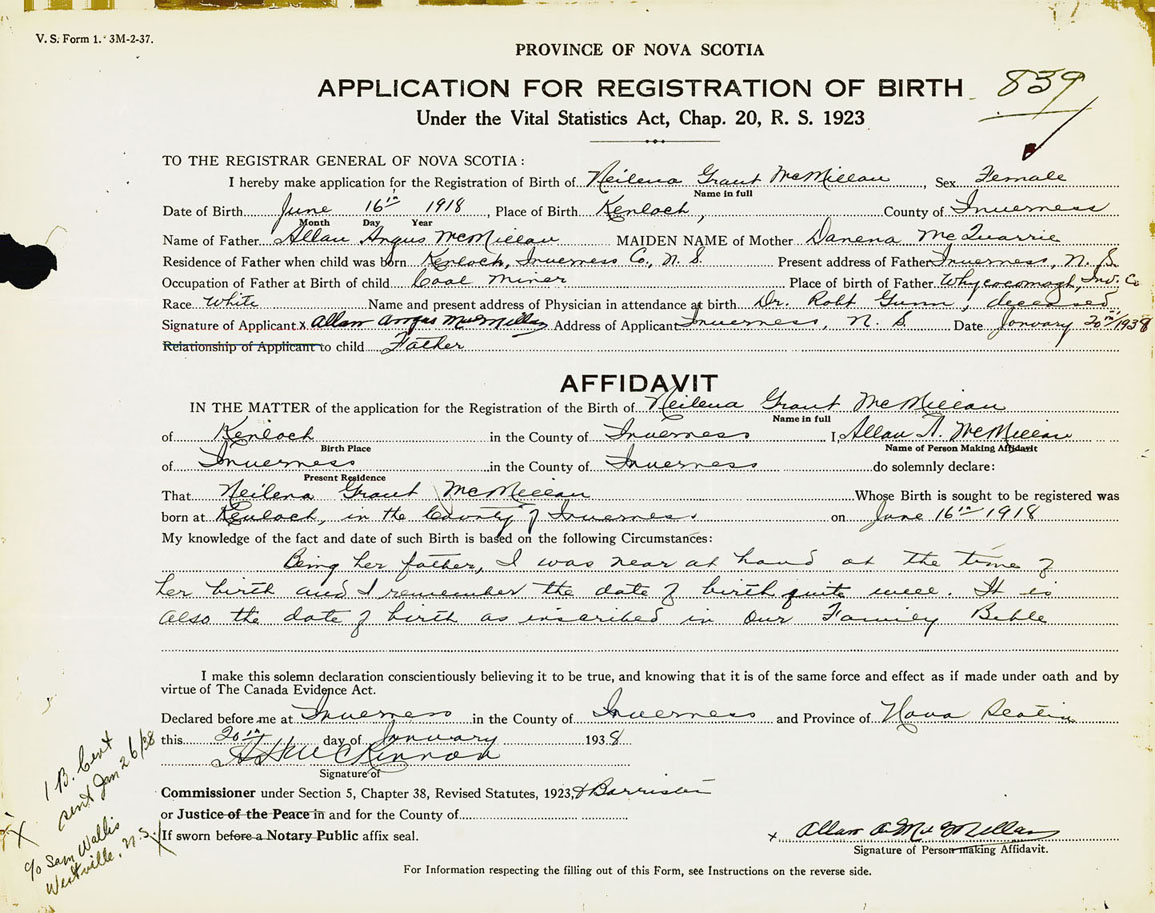 V. S. Form 1. 3M-2-37.
PROVINCE OF NOVA SCOTIA
APPLICATION FOR REGISTRATION OF BIRTH
839
Under the Vital Statistics Act, Chap. 20, R. S. 1923
TO THE REGISTRAR GENERAL OF NOVA SCOTIA:
I hereby make application for the Registration of Birth of Neilena Grant McMillan, Sex Female
Name in full
Date of Birth June 16th 1918, Place of Birth Kenloch, County of Inverness
Month Day Year
Name of Father Allan Angus McMillan MAIDEN NAME of Mother Danena McQuarrie
Residence of Father when child was born Kenloch, Inverness Co., N. S. Present address of Father Inverness, N. S.
Occupation of Father at Birth of child Coal Miner Place of birth of Father Whycocomagh, Inv. Co
Race White Name and present address of Physician in attendance at birth Dr. Robt Gunn, deceased
Signature of Applicant x Allan Angus McMillan Address of Applicant Inverness, N. S. Date January 20th/1938
Relationship of Applicant to child Father
AFFIDAVIT
IN THE MATTER of the application for the Registration of the Birth of Neilena Grant McMillan
Name in full
of Kenloch in the County of Inverness I, Allan A. McMillan
Birth Place Name of Person Making Affidavit
of Inverness in the County of Inverness do solemnly declare:
Present Residence
That Neilena Grant McMillan Whose Birth is sought to be registered was
born at Kenloch, in the County of Inverness on June 16th 1918
My knowledge of the fact and date of such Birth is based on the following Circumstances:
Being her father, I was near at hand at the time of
her birth and I remember the date of birth quite well. It is
also the date of birth as inscribed in our Family Bible
I make this solemn declaration conscientiously believing it to be true, and knowing that it is of the same force and effect as if made under oath and by
virtue of The Canada Evidence Act.
Declared before me at Inverness in the County of Inverness and Province of Nova Scotia
this 20th day of January 1938
McKinnon
Signature of
Commissioner under Section 5, Chapter 38, Revised Statutes, 1923, & Barrister
or Justice of the Peace in and for the County of
If sworn before a Notary Public affix seal.
x Allan A. McMillan
Signature of Person making Affidavit.
For Information respecting the filling out of this Form, see Instructions on the reverse side.
1 B. Cert
sent Jan 26/38
c/o Sam Wallis
Westville, N.S.